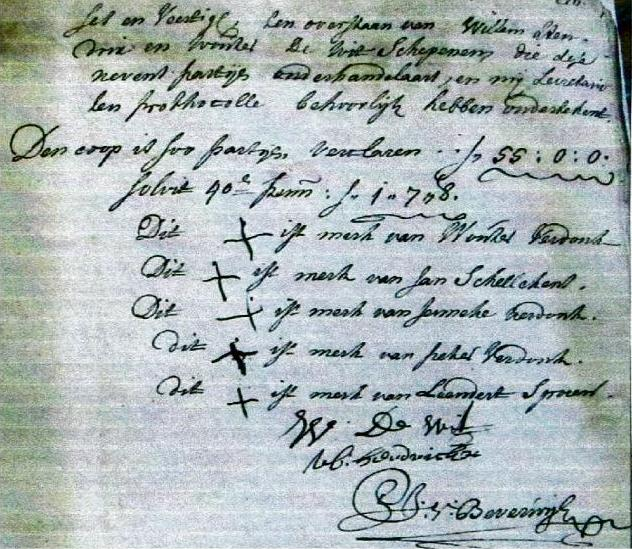 ses en Veertigh, ten overstaan van Willem Hen-
drix en Wouter De Wit Schepenen, die dese
nevens partijs onderhandelaars, en mij Secretaris
ten prothocolle behoorlijk hebben onderteekent.
Den coop is soo partijs, verclaren - - f 55:0:0.
solvit 40e penn: f. 1„7„8.
Dit + ist merk van Wouter Verdonk
Dit + ist merk van Jan Schellekens.
Dit + ist merk van Jenneke Verdonk.
dit + ist merk van Peter Verdonk.
dit + ist merk van Leendert
W. De Wit
Hendrickx
V: Beverwijk